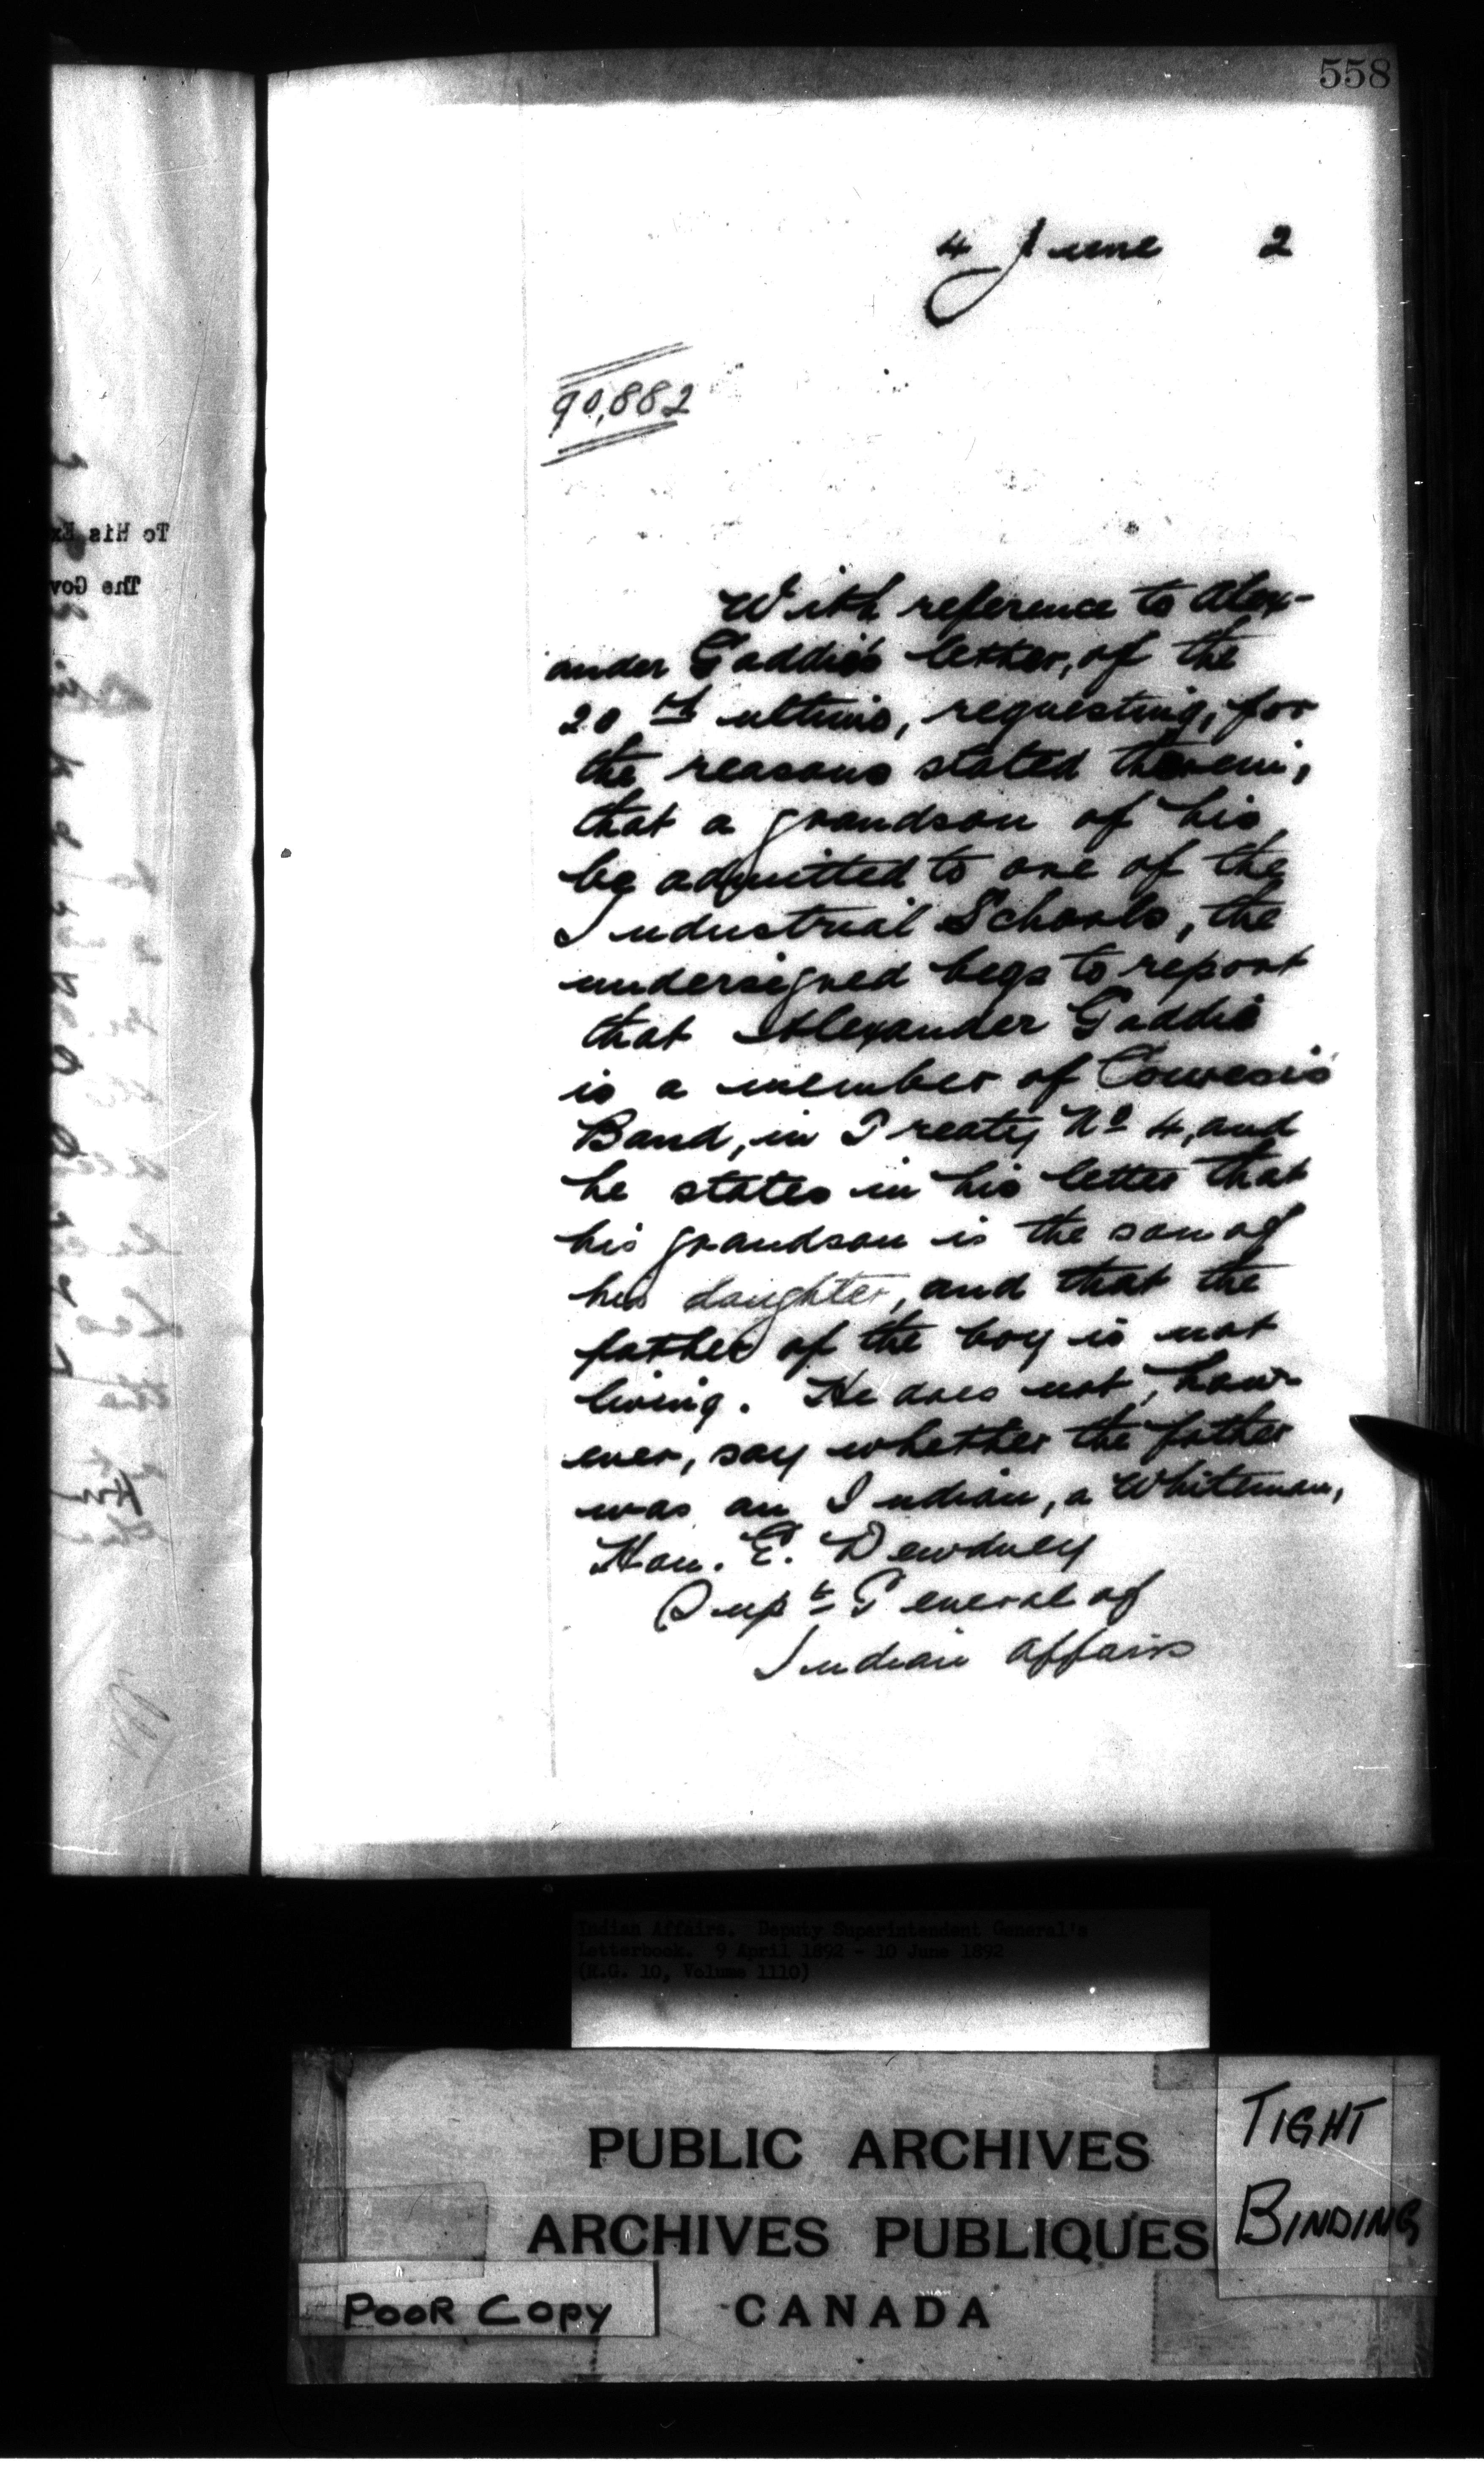 558
4 June 2
90,882
To His Ex
The Gov
With reference to Alex-
ander Gaddie's letter, of the
20th ultimo, requesting, for
the reasons stated therein,
that a grandson of his
be admitted to one of the
Industrial Schools, the
undersigned begs to report
that Alexander Gaddie
is a member of Cowesis'
Band, in Treaty No 4, and
he states in his letter that
his grandson is the son of
his daughter, and that the
father of the boy is not
living. He does not, how-
ever, say whether the father
was an Indian, a Whiteman,
Hon. E. Dewdney
Supt General of
Indian Affairs
Indian Affairs. Deputy Superintendent General's
Letterbook. 9 April 1892 - 10 June 1892
(R.G. 10, Volume 1110)
PUBLIC ARCHIVES
ARCHIVES PUBLIQUES
CANADA
TIGHT
BINDING
POOR COPY